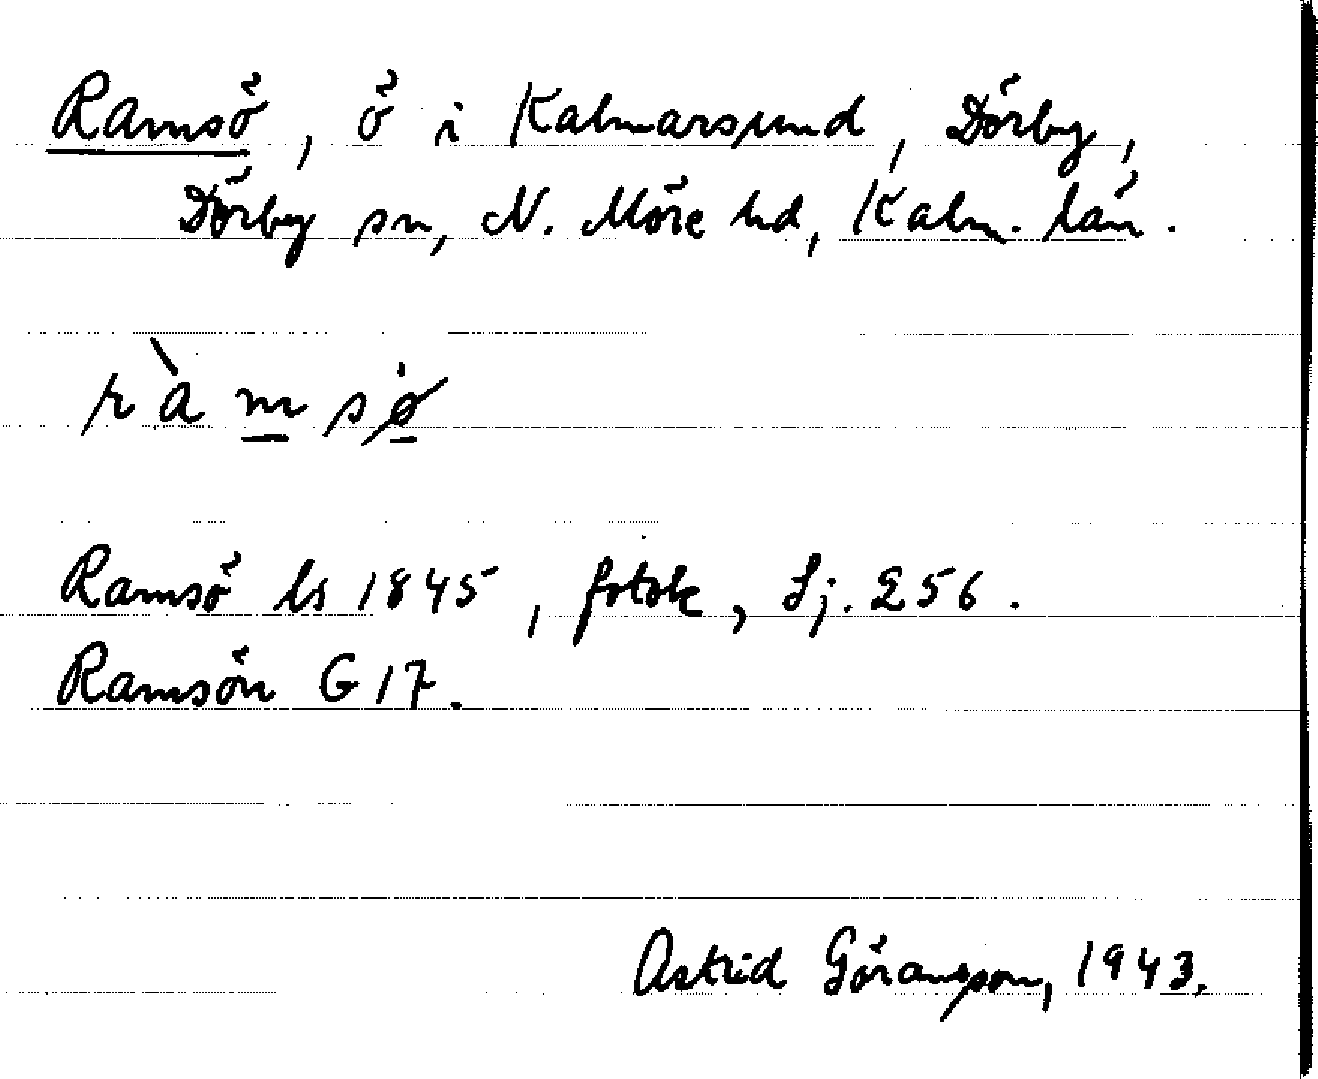 Ramsö, ö i Kalmarsund, Dörby,
Dörby sn, N. Möre hd, Kalm. län.
ràmsø
Ramsö ls 1845, fotok, Sj. 256.
Ramsön G 17.
Astrid Göransson, 1943.